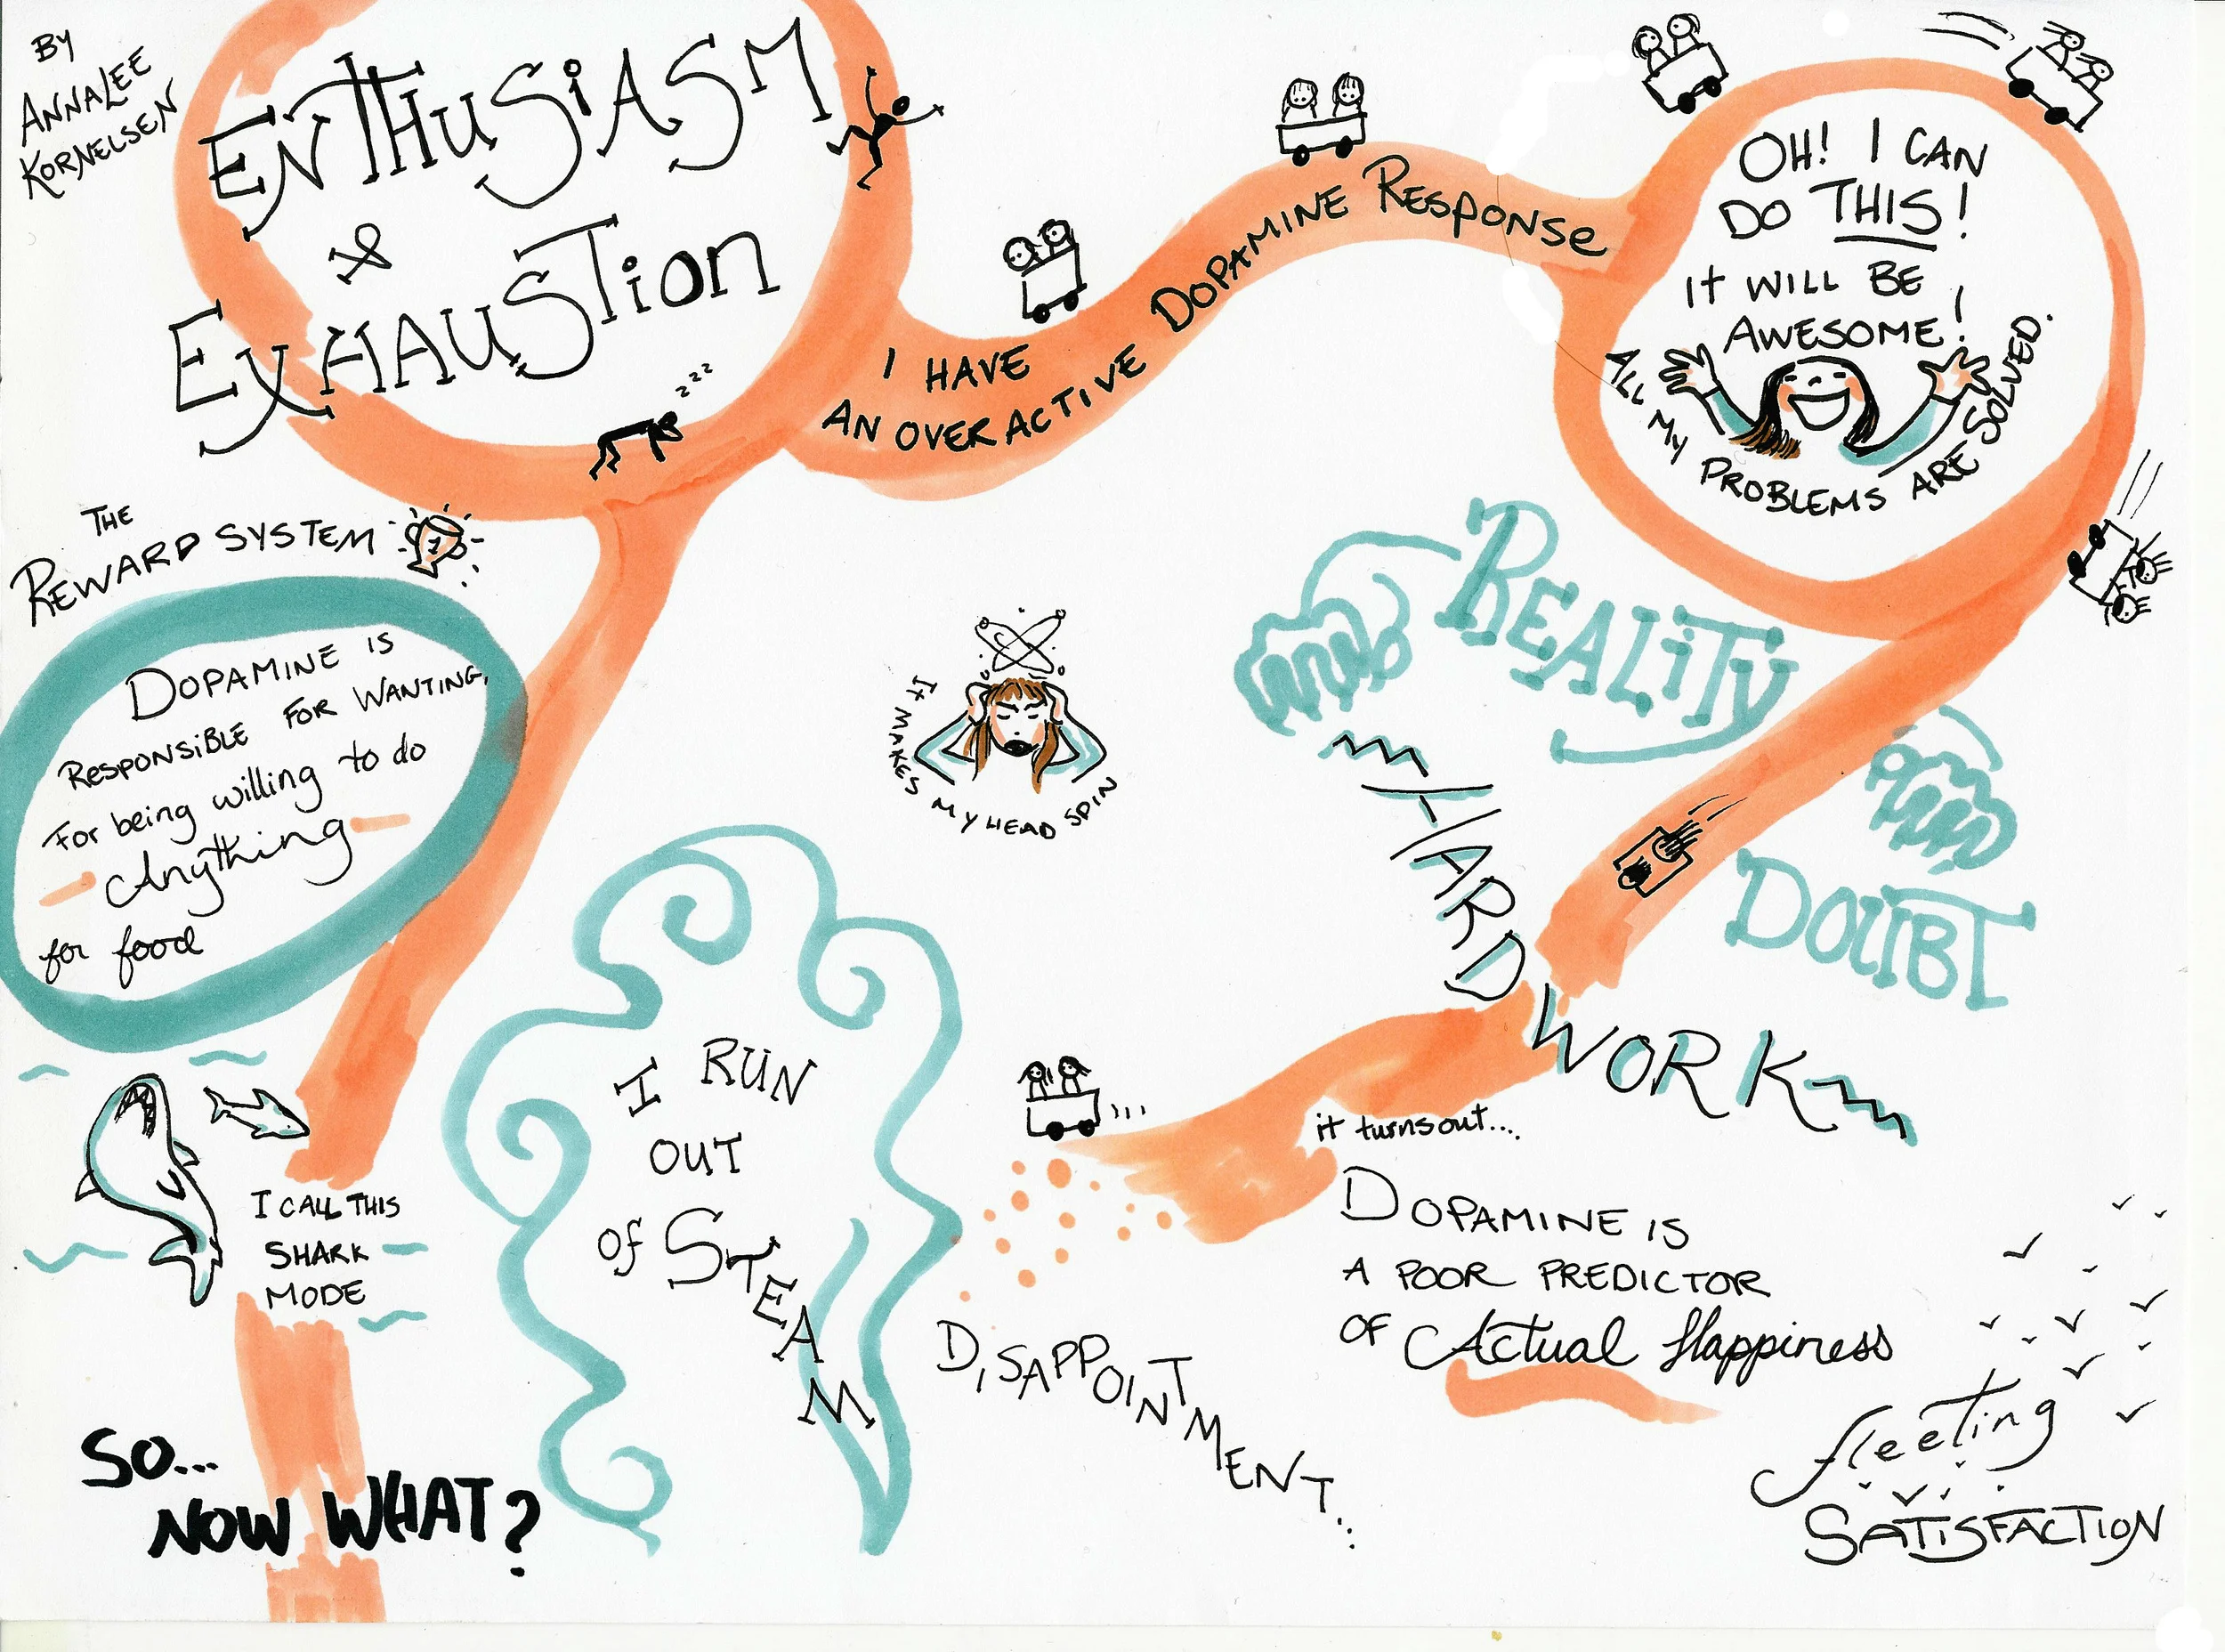 BY
ANNALEE
KORNELSEN
ENTHUSIASM
&
EXHAUSTION
zzz
I HAVE
AN OVERACTIVE DOPAMINE RESPONSE
OH! I CAN
DO THIS!
IT WILL BE
AWESOME!
ALL MY PROBLEMS ARE SOLVED.
REALITY
DOUBT
HARD WORK
IT MAKES MY HEAD SPIN
THE
REWARD SYSTEM
1
DOPAMINE IS
RESPONSIBLE FOR WANTING,
For being willing to do
Anything
for food
I CALL THIS
SHARK
MODE
I RUN
OUT
OF STEAM
DISAPPOINTMENT...
it turns out...
DOPAMINE IS
A POOR PREDICTOR
OF Actual Happiness
fleeting
SATISFACTION
SO...
NOW WHAT?